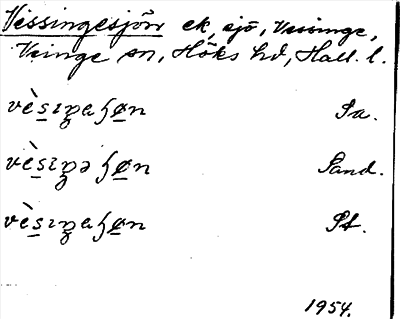 Vessingesjön ek, sjö, Vessinge,
Veinge sn, Höks hd, Hall. l.
vèsıŋaɧøn Sa.
vèsıŋəɧøn Sand.
vèsıŋaɧøn St.
1954.